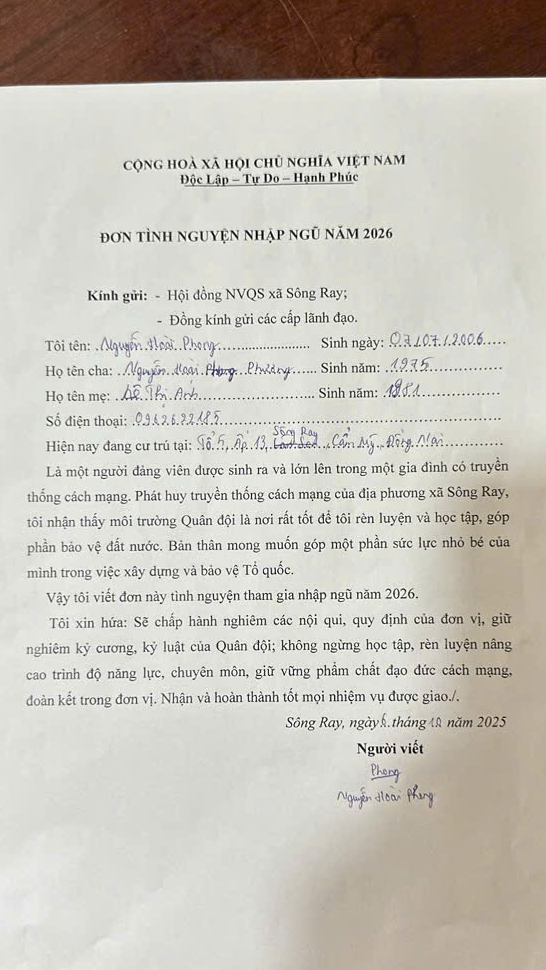 CỘNG HOÀ XÃ HỘI CHỦ NGHĨA VIỆT NAM
Độc Lập – Tự Do – Hạnh Phúc
ĐƠN TÌNH NGUYỆN NHẬP NGŨ NĂM 2026
Kính gửi: - Hội đồng NVQS xã Sông Ray;
- Đồng kính gửi các cấp lãnh đạo.
Tôi tên: Nguyễn Hoài Phong Sinh ngày: 07/07/2006
Họ tên cha: Nguyễn Hoài Phương Sinh năm: 1975
Họ tên mẹ: Lê Thị Anh Sinh năm: 1981
Số điện thoại:
Hiện nay đang cư trú tại: Tổ 5, Ấp 13, Sông Ray, Cẩm Mỹ, Đồng Nai
Là một người đảng viên được sinh ra và lớn lên trong một gia đình có truyền
thống cách mạng. Phát huy truyền thống cách mạng của địa phương xã Sông Ray,
tôi nhận thấy môi trường Quân đội là nơi rất tốt để tôi rèn luyện và học tập, góp
phần bảo vệ đất nước. Bản thân mong muốn góp một phần sức lực nhỏ bé của
mình trong việc xây dựng và bảo vệ Tổ quốc.
Vậy tôi viết đơn này tình nguyện tham gia nhập ngũ năm 2026.
Tôi xin hứa: Sẽ chấp hành nghiêm các nội qui, quy định của đơn vị, giữ
nghiêm kỷ cương, kỷ luật của Quân đội; không ngừng học tập, rèn luyện nâng
cao trình độ năng lực, chuyên môn, giữ vững phẩm chất đạo đức cách mạng,
đoàn kết trong đơn vị. Nhận và hoàn thành tốt mọi nhiệm vụ được giao./.
Sông Ray, ngày tháng năm 2025
Người viết
Phong
Nguyễn Hoài Phong